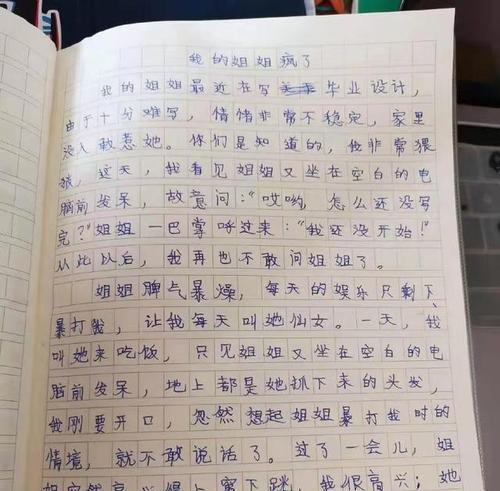 我的姐姐疯了
我的姐姐最近在写毕业设计，
由于十分难写，情绪非常不稳定，家里
没人敢惹她。你们是知道的，我非常狠
狼，这天，我看见姐姐又坐在空白的电
脑前发呆，故意问：“哎哟，怎么还没写
完？”姐姐一巴掌呼过来：“我还没开始！”
从此以后，我再也不敢问姐姐了。
姐姐脾气暴燥，每天的娱乐只剩下
暴打我，让我每天叫她仙女。一天，我
叫她来吃饭，只见姐姐又坐在空白的电
脑前发呆，地上都是她抓下来的头发，
我刚要开口，忽然想起姐姐暴打我时的
情境，就不敢说话了。过了一会儿，姐
姐突然高兴得上窜下跳，我很高兴；她